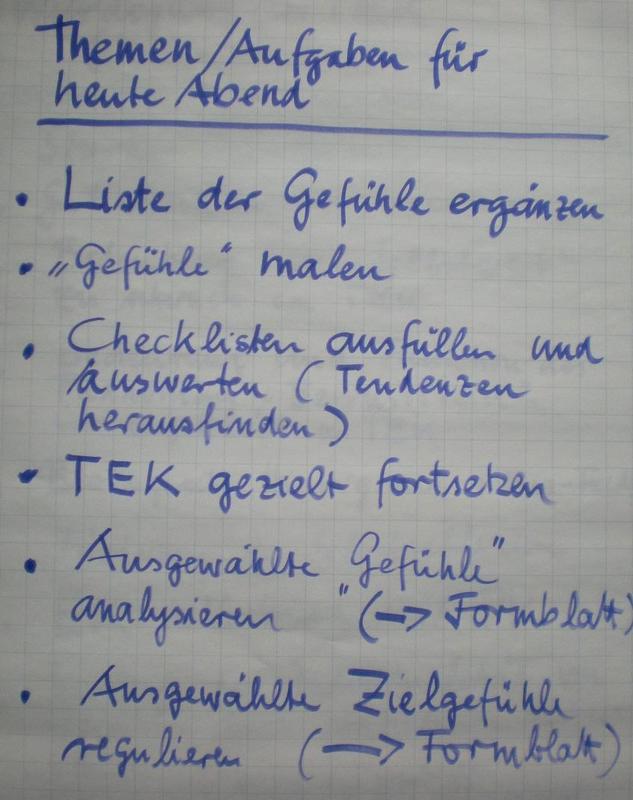 Themen/Aufgaben für
heute Abend
• Liste der Gefühle ergänzen
• „Gefühle“ malen
• Checklisten ausfüllen und
auswerten (Tendenzen
herausfinden)
• TEK gezielt fortsetzen
• Ausgewählte „Gefühle“
analysieren (→ Formblatt)
• Ausgewählte Zielgefühle
regulieren (→ Formblatt)